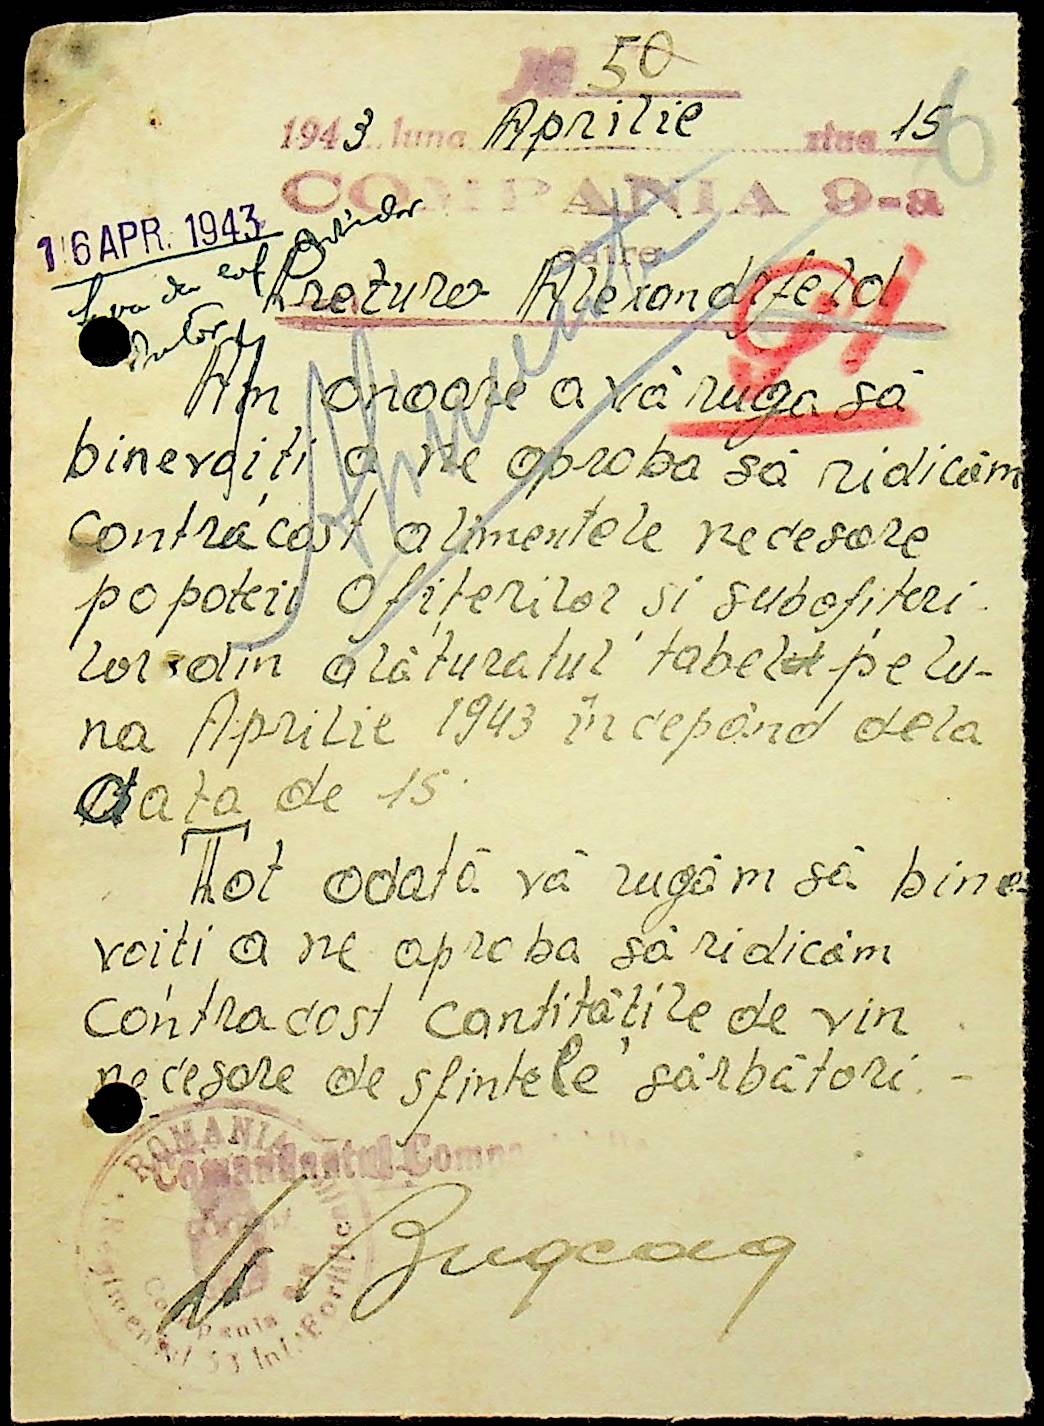 № 50
1943 luna Aprilie ziua 15
6
COMPANIA 9-a
16 APR. 1943
către
Pretura Alexandrfeld
91
Am onoare a vă ruga să
binevoiți a ne aproba să ridicăm
contra cost alimentele necesare
popotei Ofițerilor și subofițeri-
lor din alăturatul tabel pe lu-
na Aprilie 1943 începând dela
Data de 15.
Tot odată vă rugăm să bine-
voiti a ne aproba să ridicăm
contra cost cantitățile de vin
necesare de sfintele sărbători. -
ROMANIA
Comandantul Comp
Compania
Regimentul 53 Inf. Fortific